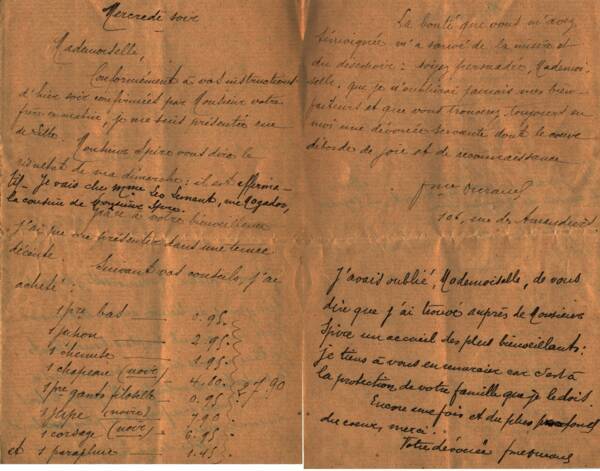 Mercredi soir
Mademoiselle,
Conformément à vos instructions
d'hier soir confirmées par Monsieur votre
frère ce matin, je me suis présentée rue
de
Monsieur Spire vous dira le
résultat de ma démarche : il est affirma-
tif. Je vais chez Mme Léo rue Mogador,
la cousine de Monsieur Spire.
Grâce à votre bienveillance
j'ai pu me présenter dans une tenue
décente. Suivant vos conseils, j'ai
acheté :
1 pre bas — 0.95
1 jupon — 2.95
1 chemise — 1.95
1 chapeau (noir) — 4.80
1 pre gants filoselle 0.95
1 jupe (noire) 7.90
1 corsage (noir) — 6.95
et 1 parapluie — 1.45
27.90
La bonté que vous m'avez
témoignée m'a sauvé de la misère et
du désespoir : soyez persuadée, Mademoi-
selle, que je n'oublierai jamais mes bien-
faiteurs et que vous trouverez toujours en
moi une dévouée servante dont le coeur
déborde de joie et de reconnaissance
106, rue des Amandiers.
J'avais oublié, Mademoiselle, de vous
dire que j'ai trouvé auprès de Monsieur
Spire un accueil des plus bienveillants :
je tiens à vous en remercier car c'est à
la protection de votre famille que je le dois.
Encore une fois et du plus profond
du coeur, merci.
Votre dévouée